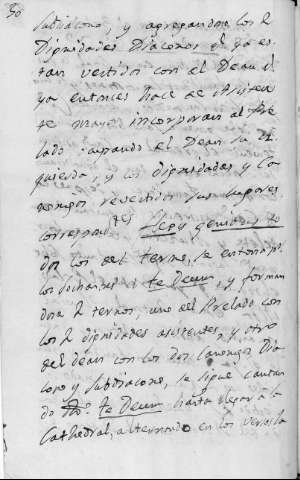 30
subdiacono, y agregandose los 2
Dignidades Diaconos q.e ya es-
tan vestidos con el Dean q.e
ya entonces hace de Asisten
te mayor incorporan al Pre
lado ocupando el Dean su iz
quierda, y los dignidades y Ca
nongos revestidos sus lugares
correspond.tes
dos los del terno, se entona p.r
los sochantres el te Deum, y forman
dose 2 ternos, uno del Prelado con
los 2 dignidades asistentes, y otro
del dean con los dos Canongos Dia
cono y Subdiacono, se sigue cantan
do dho. te Deum hasta llegar a la
Cathedral, alternando en los versos la